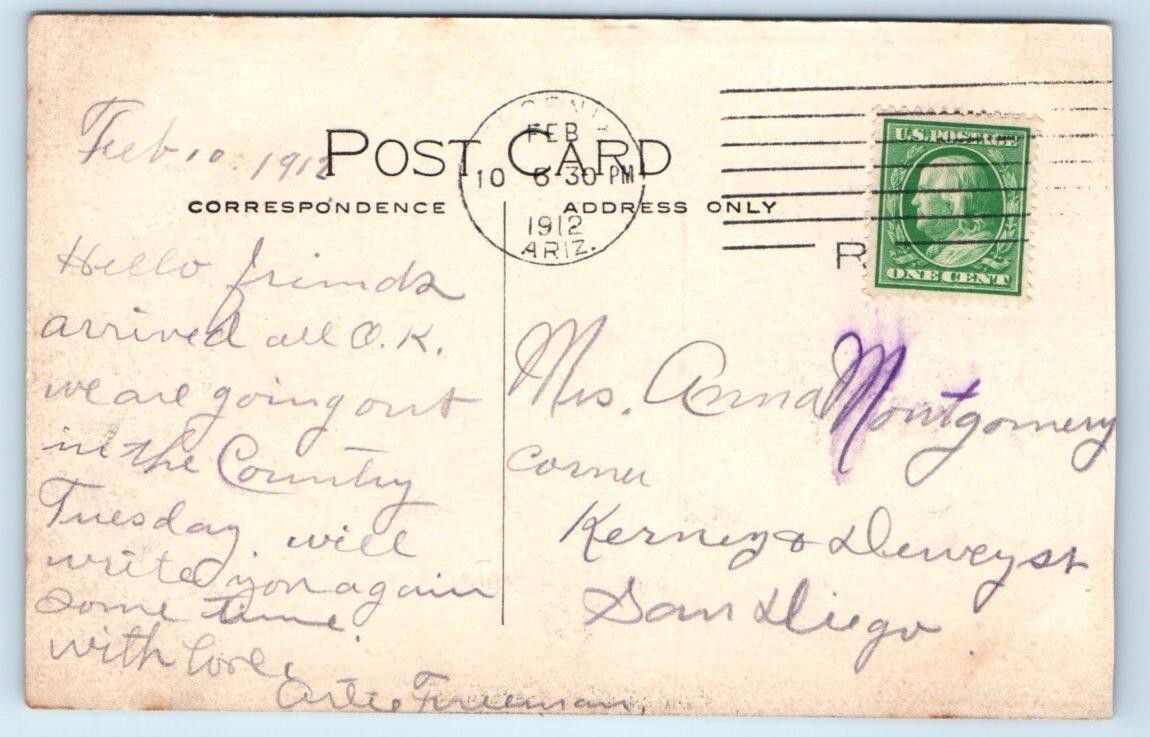 Feb 10. 1912
POST CARD
CORRESPONDENCE
ADDRESS ONLY
FEB
10 6 30 PM
1912
ARIZ.
U.S. POSTAGE
ONE CENT
R
Hello friends
arrived all O.K.
we are going out
in the Country
Tuesday. will
write you again
some time.
with love.
Artie Freeman.
Mrs. Anna Montgomery
corner
Kerney & Dewey st
San Diego